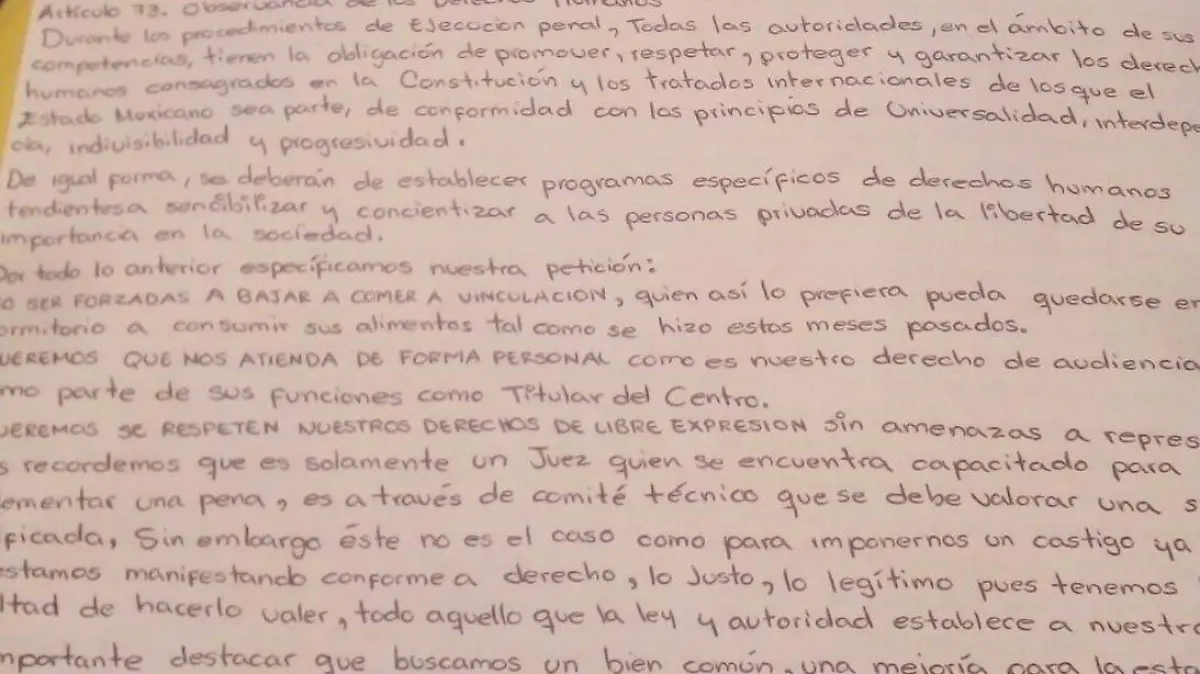 Artículo 73. Observancia de los Derechos Humanos
Durante los procedimientos de Ejecución penal, Todas las autoridades, en el ámbito de sus
competencias, tienen la obligación de promover, respetar, proteger y garantizar los derech
humanos consagrados en la Constitución y los tratados internacionales de los que el
Estado Mexicano sea parte, de conformidad con los principios de Universalidad, interdepe
cia, indivisibilidad y progresividad.
De igual forma, se deberán de establecer programas específicos de derechos humanos
tendientes a sencibilizar y concientizar a las personas privadas de la libertad de su
importancia en la sociedad.
Por todo lo anterior específicamos nuestra petición:
O SER FORZADAS A BAJAR A COMER A VINCULACION, quien así lo prefiera pueda quedarse en
ormitorio a consumir sus alimentos tal como se hizo estos meses pasados.
UEREMOS QUE NOS ATIENDA DE FORMA PERSONAL como es nuestro derecho de audiencia
mo parte de sus funciones como Titular del Centro.
UEREMOS SE RESPETEN NUESTROS DERECHOS DE LIBRE EXPRESION sin amenazas a repres
s recordemos que es solamente un Juez quien se encuentra capacitado para
ementar una pena, es a través de comité técnico que se debe valorar una s
ficada, Sin embargo éste no es el caso como para imponernos un castigo ya
estamos manifestando conforme a derecho, lo Justo, lo legítimo pues tenemos
ltad de hacerlo valer, todo aquello que la ley y autoridad establece a nuestro
mportante destacar que buscamos un bien común, una mejoría para la esta